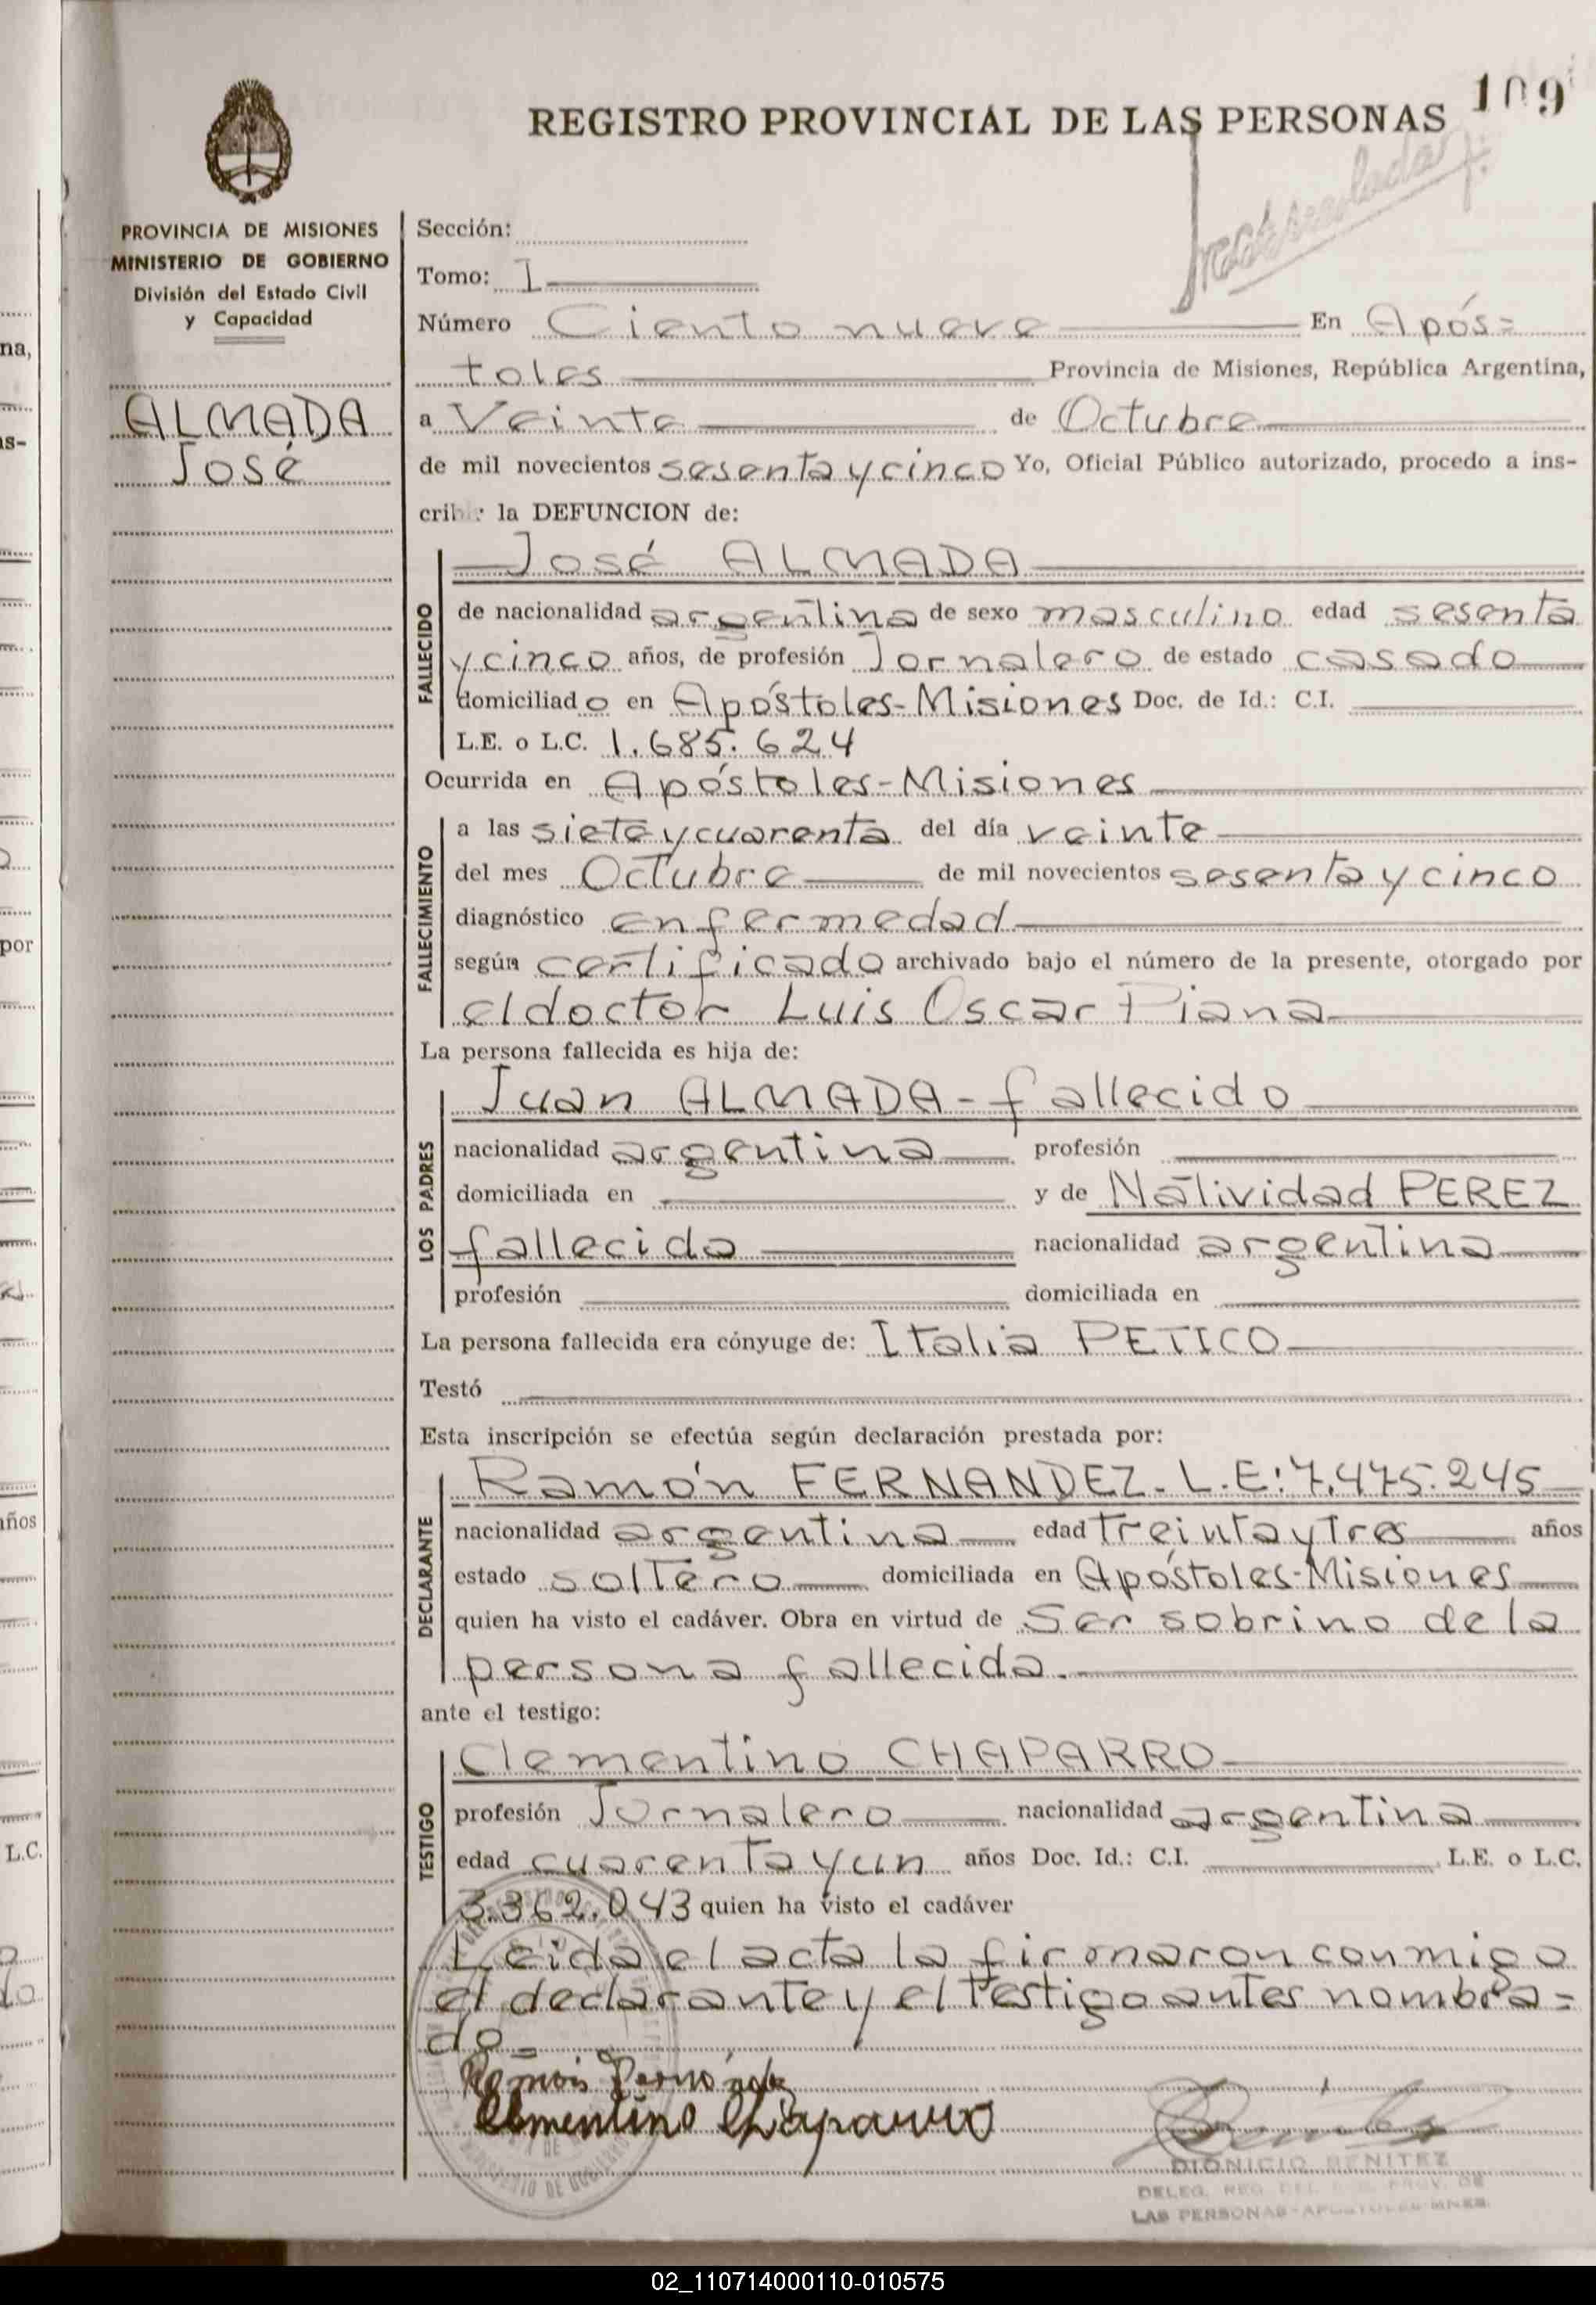 109
REGISTRO PROVINCIAL DE LAS PERSONAS
PROVINCIA DE MISIONES
MINISTERIO DE GOBIERNO
División del Estado Civil
y Capacidad
ALMADA
José
Sección:
Tomo: I
Número Ciento nueve En Após=
toles Provincia de Misiones, República Argentina,
a Veinte de Octubre
de mil novecientos sesenta y cinco Yo, Oficial Público autorizado, procedo a ins-
cribir la DEFUNCION de:
José ALMADA
FALLECIDO
de nacionalidad argentina de sexo masculino edad sesenta
y cinco años, de profesión Jornalero de estado casado
domiciliado en Apóstoles-Misiones Doc. de Id.: C.I.
L.E. o L.C. 1.685.624
Ocurrida en Apóstoles-Misiones
FALLECIMIENTO
a las siete y cuarenta del día veinte
del mes Octubre de mil novecientos sesenta y cinco
diagnóstico enfermedad
según certificado archivado bajo el número de la presente, otorgado por
el doctor Luis Oscar Piana
La persona fallecida es hija de:
LOS PADRES
Juan ALMADA-fallecido
nacionalidad argentina profesión
domiciliada en y de Natividad PEREZ
fallecida nacionalidad argentina
profesión domiciliada en
La persona fallecida era cónyuge de: Italia PETICO
Testó
Esta inscripción se efectúa según declaración prestada por:
DECLARANTE
Ramón FERNANDEZ. L.E:7.475.245
nacionalidad argentina edad treinta y tres años
estado soltero domiciliada en Apóstoles-Misiones
quien ha visto el cadáver. Obra en virtud de Ser sobrino de la
persona fallecida.
ante el testigo:
TESTIGO
Clementino CHAPARRO
profesión Jornalero nacionalidad argentina
edad cuarenta y un años Doc. Id.: C.I. L.E. o L.C.
3.362.043 quien ha visto el cadáver
Leida el acta la firmaron conmigo
el declarante y el testigo antes nombra=
do=
Ramón Fernández
Clementino Chaparro
DIONICIO BENITEZ
DELEG. REG. PROV. DE
LAS PERSONAS-APOSTOLES-MNES.
02_110714000110-010575